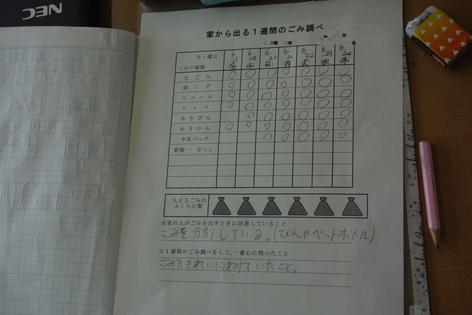 NEC
家から出る1週間のごみ調べ
月・曜日
ごみの種類
生ごみ
紙くず
ビニール
トレイ
あきびん
あきかん
牛乳パック
新聞・ざっし
もえるごみの
ふくろの数
☆家の人がごみを出すときに注意していること
ごみを分別している。(びんやペットボトル)
☆1週間のごみ調べをして、一番心に残ったこと
ごみをきれいにわけていたこと。